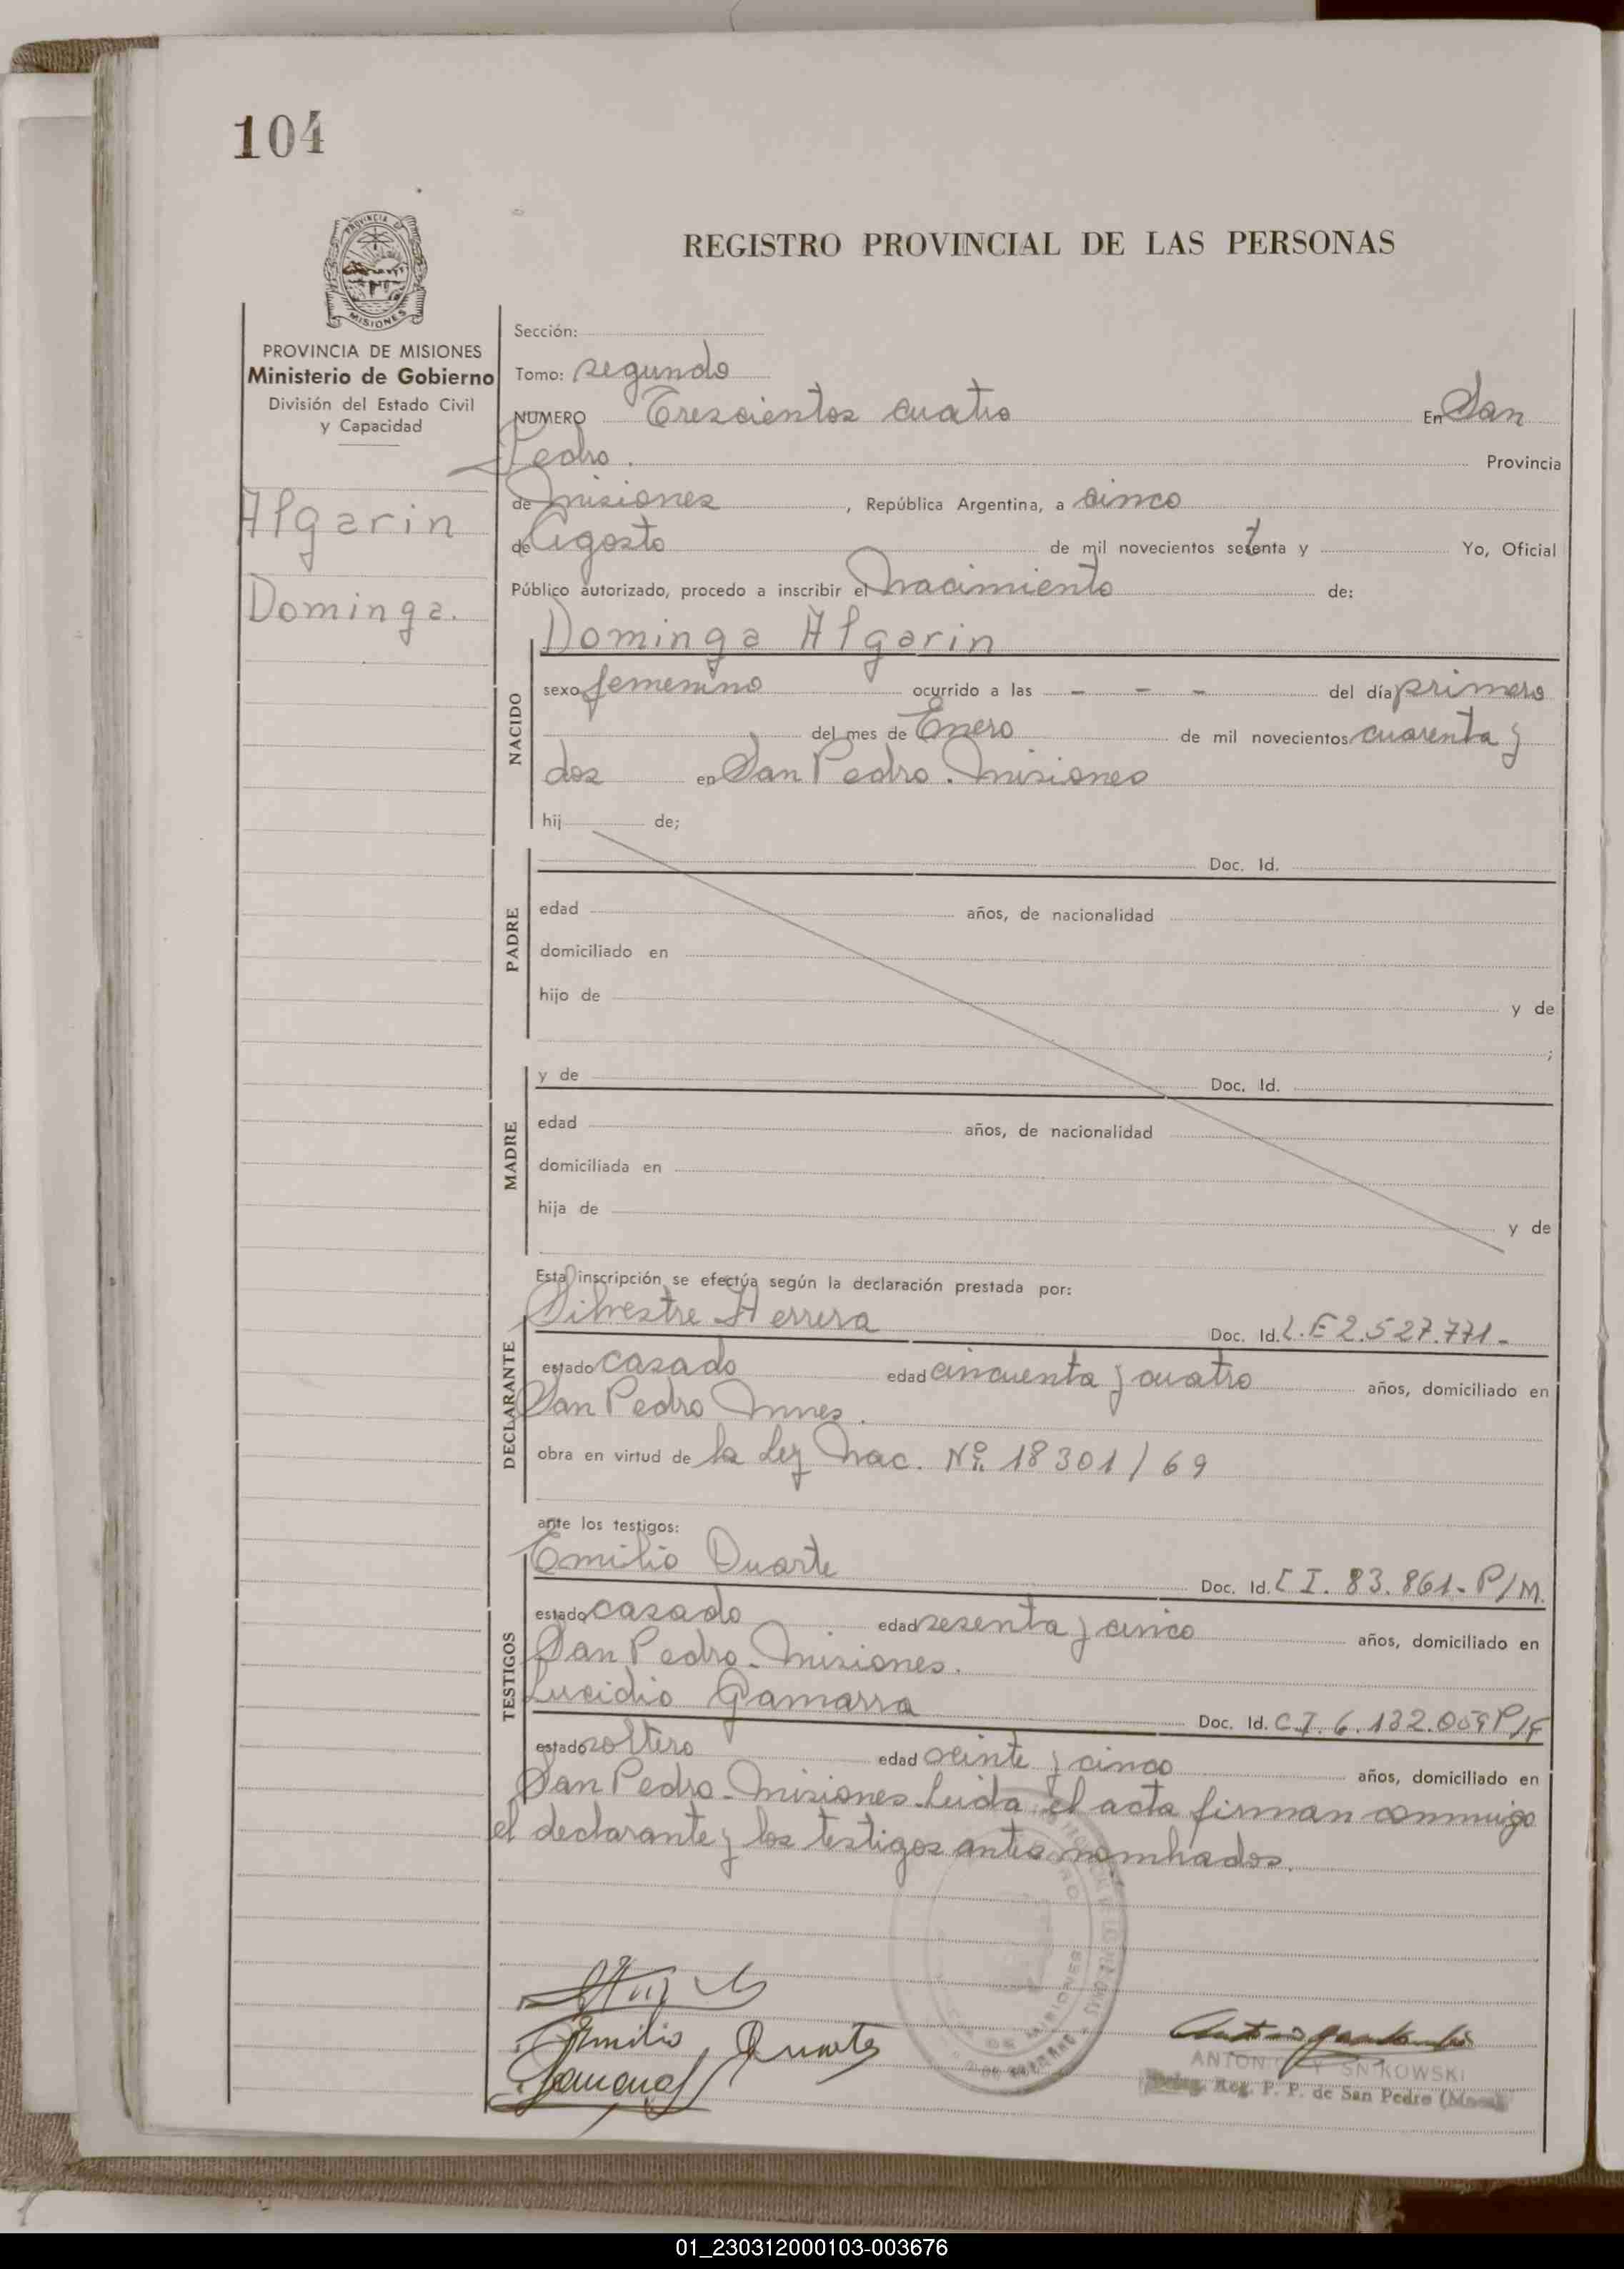 104
PROVINCIA DE
MISIONES
REGISTRO PROVINCIAL DE LAS PERSONAS
PROVINCIA DE MISIONES
Ministerio de Gobierno
División del Estado Civil
y Capacidad
Algarin
Dominga.
Sección:
Tomo: segundo
NUMERO Trescientos cuatro En San
Pedro. Provincia
de Misiones, República Argentina, a cinco
de Agosto de mil novecientos setenta y Yo, Oficial
Público autorizado, procedo a inscribir el Nacimiento de:
Dominga Algarin
NACIDO
sexo femenino ocurrido a las - - - del día primero
del mes de Enero de mil novecientos cuarenta y
dos en San Pedro. Misiones
hij de;
PADRE
Doc. Id.
edad años, de nacionalidad
domiciliado en
hijo de y de
;
MADRE
y de Doc. Id.
edad años, de nacionalidad
domiciliada en
hija de y de
Esta inscripción se efectúa según la declaración prestada por:
DECLARANTE
Silvestre Herrera Doc. Id. L.E 2.527.771-
estado casado edad cincuenta y cuatro años, domiciliado en
San Pedro Mnes.
obra en virtud de la Ley Nac. Nº 18301/69
ante los testigos:
TESTIGOS
Emilio Duarte Doc. Id. C I. 83.861- P/M.
estado casado edad sesenta y cinco años, domiciliado en
San Pedro - Misiones.
Lucidio Gamarra Doc. Id. C.I. 6.132.059 P/F
estado soltero edad veinte y cinco años, domiciliado en
San Pedro - Misiones. Leida el acta firman conmigo
el declarante y los testigos antes nombrados.
Emilio Duarte
MISIONES
ANTONI SNIKOWSKI
Deleg. Reg. P. P. de San Pedro (Mnes)
01_230312000103-003676